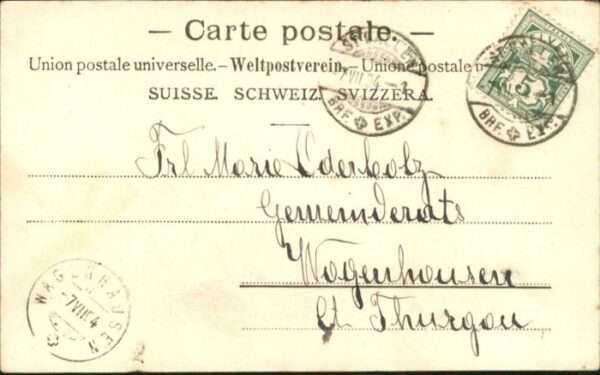 — Carte postale. —
Union postale universelle. – Weltpostverein. – Unione postale
SUISSE. SCHWEIZ. SVIZZERA.
BRF. EXP.
5
BRF. EXP.
Frl Marie Oderbolz
Gemeinderats
Wagenhausen
Ct. Thurgau
WAGENHAUSEN
7 VIII 04